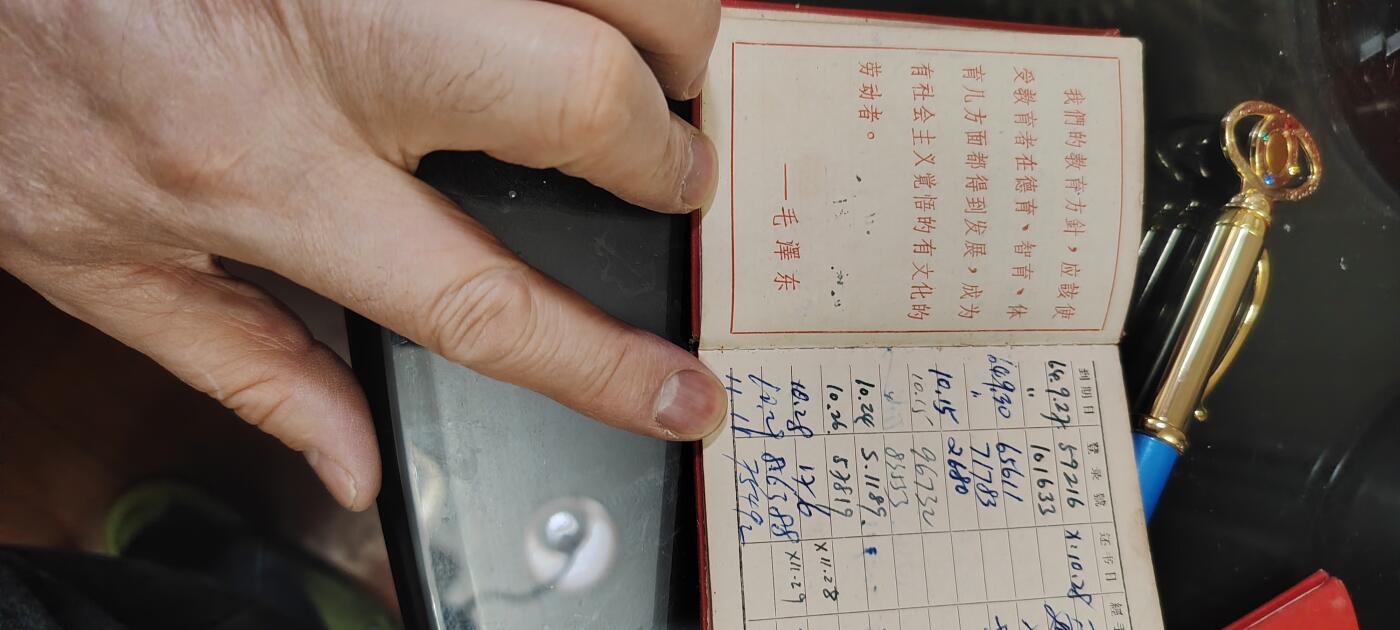 我們的教育方針，应該使
受教育者在德育、智育、体
育几方面都得到发展，成为
有社会主义觉悟的有文化的
劳动者。
——毛澤东
到期日 登录號 还书日 經手
64.9.27 57216 X:10.28
" 101633
64.9.30 6561
" 71783
10.15 2680
10.15 96732
83533
10.24 5.1189.
10.26. 57819
10.28 X 11.28
X11.29
75492